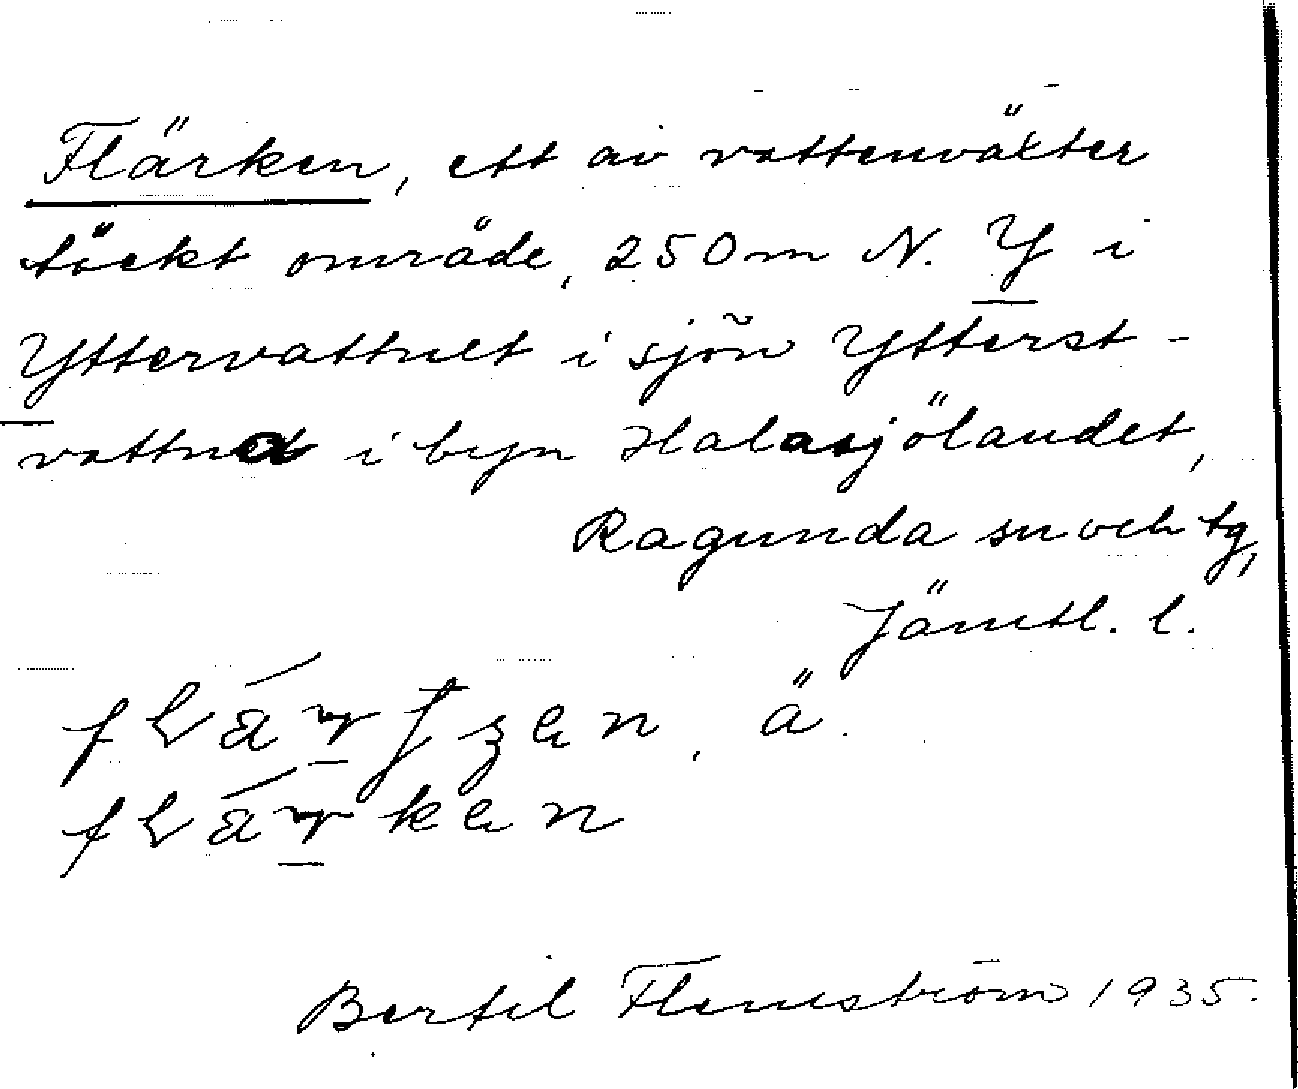 Flärken, ett av vattenväxter
täckt område, 250 m N. Y i
Yttervattnet i sjön Ytterst-
vattnet i byn Halasjölandet,
Ragunda sn och tg,
Jämtl. l.
ä.
Bertil Flemström 1935.